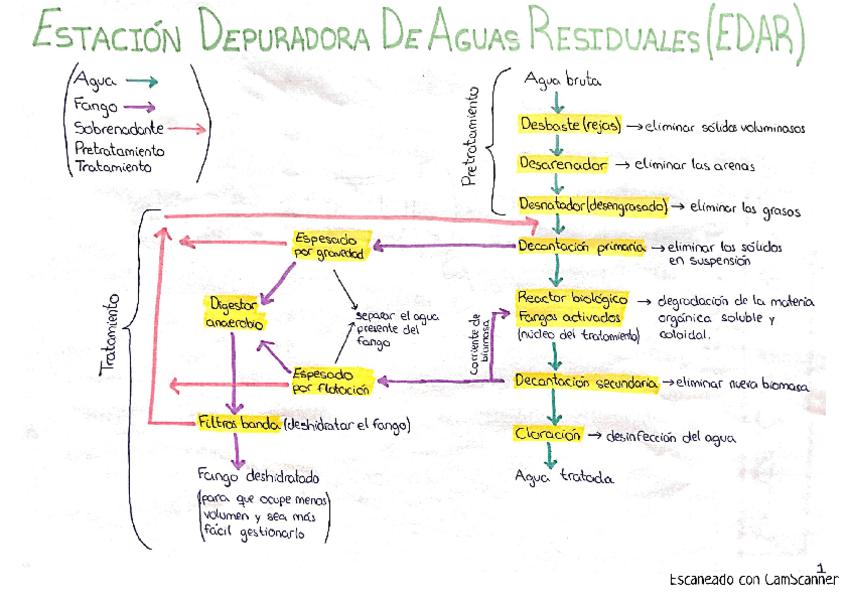 ESTACIÓN DEPURADORA DE AGUAS RESIDUALES (EDAR)
Agua →
Fango →
Sobrenadante →
Pretratamiento
Tratamiento
Pretratamiento
Agua bruta
Desbaste (rejas) → eliminar sólidos voluminosos
Desarenador → eliminar las arenas
Desnatador (desengrasado) → eliminar las grasas
Decantación primaria → eliminar los sólidos
en suspensión
Reactor biológico → degradación de la materia
Fangos activados orgánica soluble y
(núcleo del tratamiento) coloidal.
Corriente de
biomasa
Decantación secundaria → eliminar nueva biomasa
Cloración → desinfección del agua
Agua tratada
Tratamiento
Espesado
por gravedad
Digestor
anaerobio
separar el agua
presente del
fango
Espesado
por flotación
Filtros banda (deshidratar el fango)
Fango deshidratado
(para que ocupe menos
volumen y sea más
fácil gestionarlo)
1
Escaneado con CamScanner